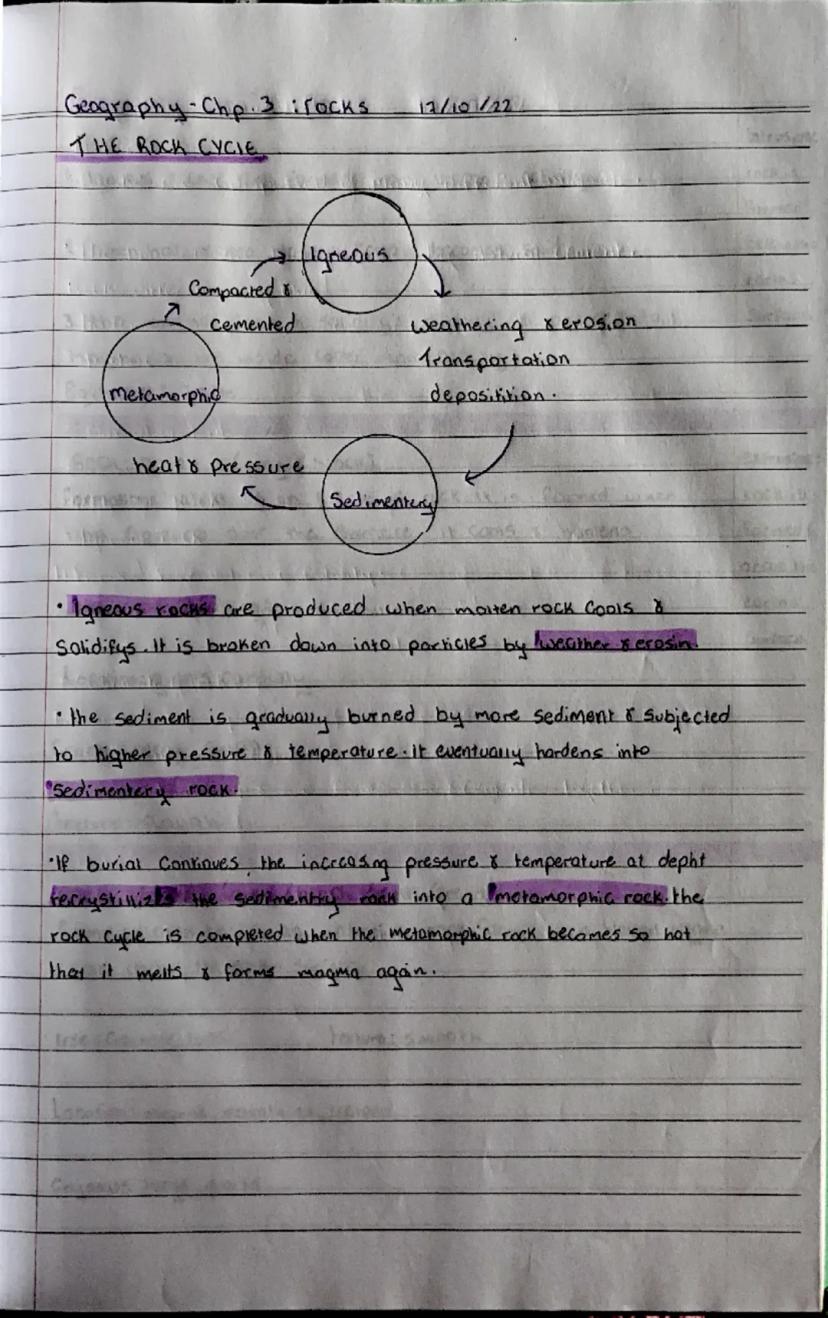 Geography - Chp. 3 : rocks 17/10/22
THE ROCK CYCLE
Igneous
Compacted &
cemented
weathering & erosion
Transportation
deposition.
metamorphic
heat & pressure
Sedimentery
• Igneous rocks are produced when molten rock cools &
Solidifys. It is broken down into particles by weather & erosin.
• the sediment is gradually burned by more sediment & subjected
to higher pressure & temperature. it eventually hardens into
sedimentery rock.
• If burial Continues, the increasng pressure & temperature at depht
the sedimentry rock into a metamorphic rock. the
rock cycle is completed when the metamorphic rock becomes so hot
that it melts & forms magma again.